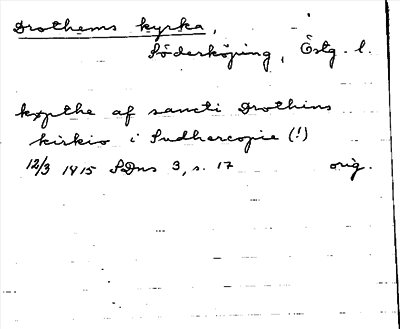 Drothems kyrka,
Söderköping, Östg. l.
køpthe af sancti Drothins
kirkio i Sudhercopie (!)
12/3 1415 SDns 3, s. 17 orig.